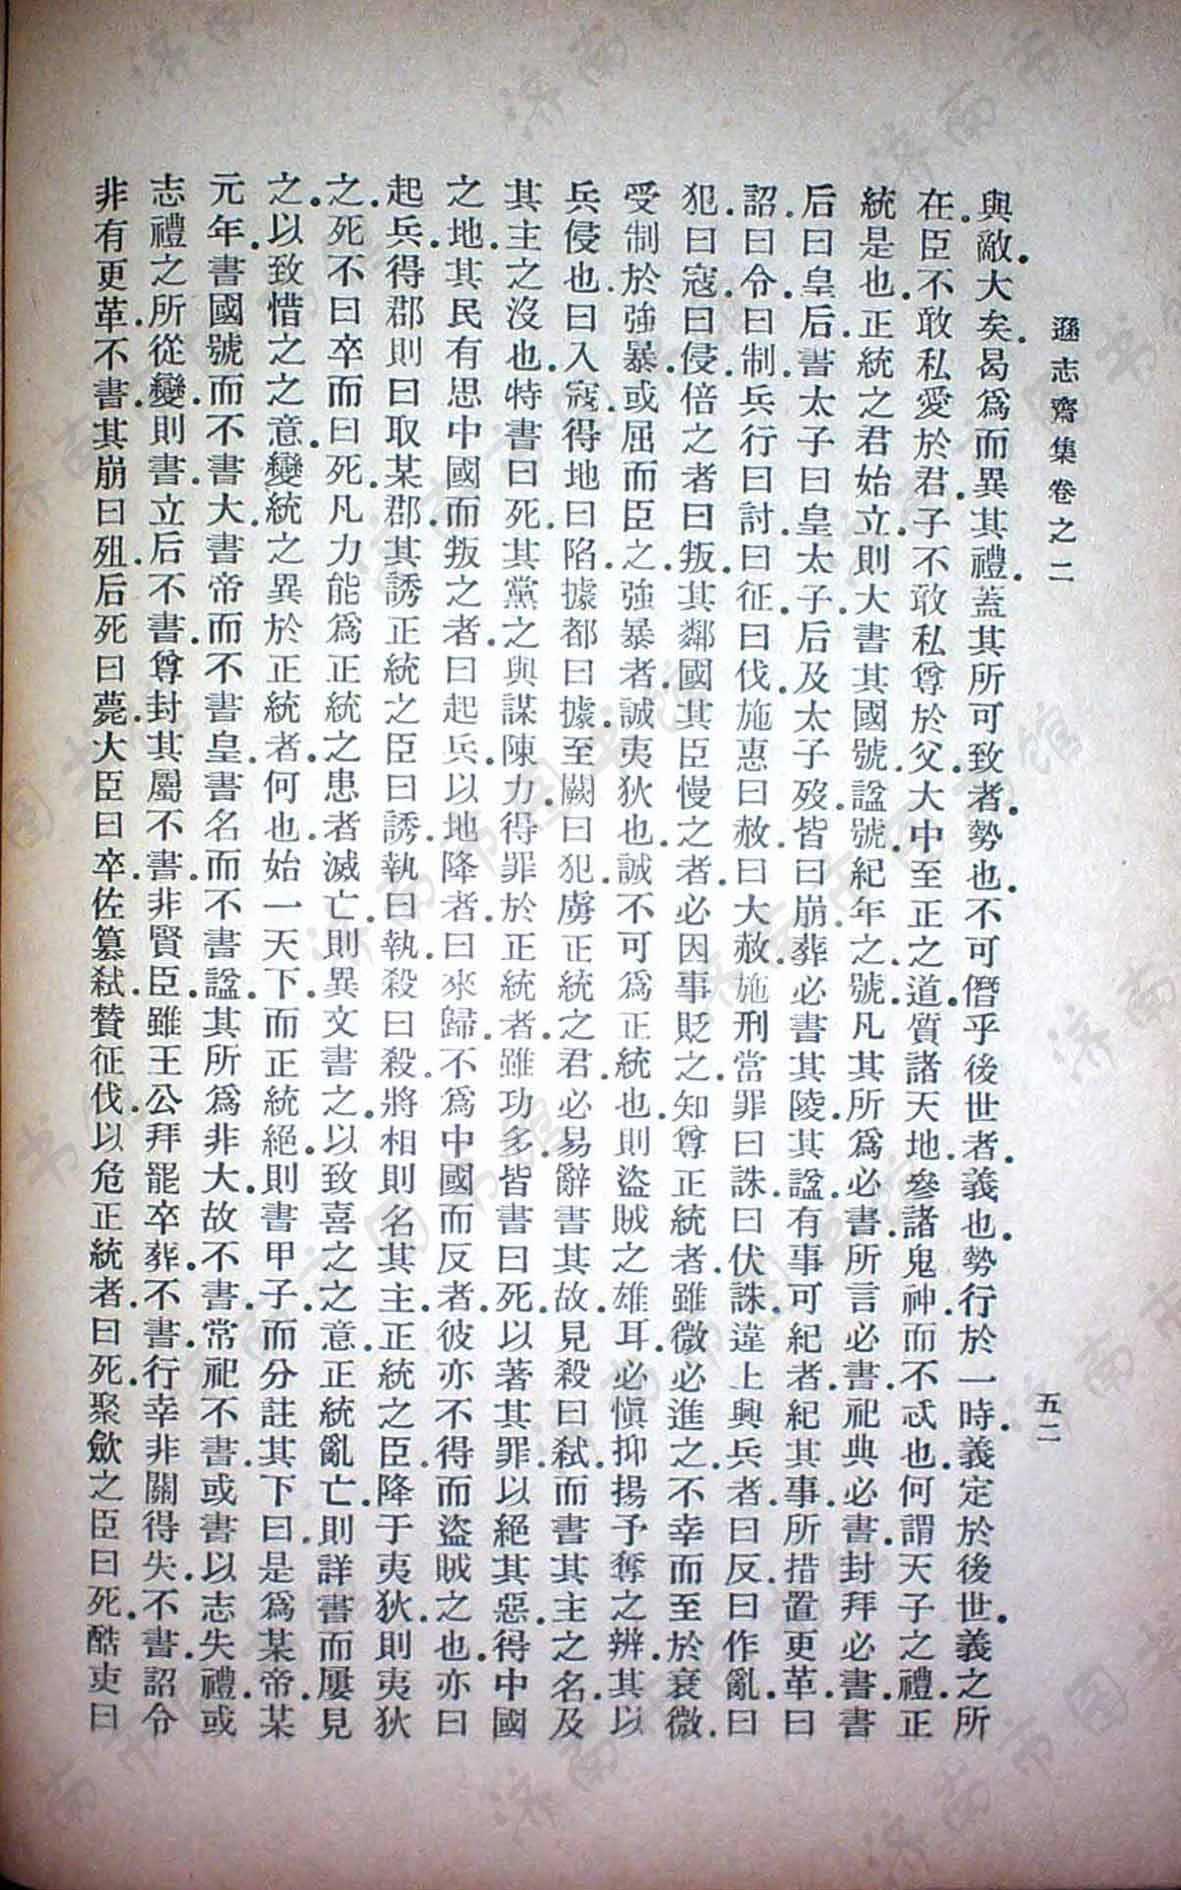 遜志齋集卷之二
五二
與敵大矣.曷爲而異其禮.蓋其所可致者.勢也.不可僭乎後世者.義也.勢行於一時.義定於後世.義之所
在.臣不敢私愛於君.子不敢私尊於父.大中至正之道.質諸天地.參諸鬼神.而不忒也.何謂天子之禮.正
統是也.正統之君始立.則大書其國號.諡號.紀年之號.凡其所爲必書.所言必書.祀典必書.封拜必書.書
后曰皇后.書太子曰皇太子.后及太子歿.皆曰崩.葬必書其陵其諡.有事可紀者.紀其事.所措置更革.曰
詔.曰令.曰制.兵行曰討.曰征.曰伐.施惠曰赦.曰大赦.施刑當罪曰誅.曰伏誅.違上興兵者.曰反.曰作亂.曰
犯.曰寇.曰侵.倍之者曰叛.其鄰國其臣慢之者.必因事貶之.知尊正統者.雖微必進之.不幸而至於衰微.
受制於強暴.或屈而臣之.強暴者.誠夷狄也.誠不可爲正統也.則盜賊之雄耳.必愼抑揚予奪之辨.其以
兵侵也.曰入寇.得地曰陷.據都曰據.至闕曰犯.虜正統之君.必易辭書其故.見殺曰弑.而書其主之名.及
其主之沒也.特書曰死.其黨之與謀陳力.得罪於正統者.雖功多.皆書曰死.以著其罪.以絕其惡.得中國
之地.其民有思中國而叛之者.曰起兵.以地降者.曰來歸.不爲中國而反者.彼亦不得而盜賊之也.亦曰
起兵.得郡則曰取某郡.其誘正統之臣曰誘.執曰執.殺曰殺.將相則名其主.正統之臣.降于夷狄.則夷狄
之.死不曰卒.而曰死.凡力能爲正統之患者.滅亡.則異文書之.以致喜之之意.正統亂亡.則詳書而屢見
之.以致惜之之意.變統之異於正統者.何也.始一天下.而正統絕.則書甲子.而分註其下曰.是爲某帝.某
元年.書國號而不書大.書帝而不書皇.書名而不書諡.其所爲非大故不書.常祀不書.或書.以志失禮.或
志禮之所從變.則書.立后不書.尊封其屬不書.非賢臣.雖王公拜罷卒葬.不書.行幸非關得失.不書.詔令
非有更革.不書.其崩曰殂.后死曰薨.大臣曰卒.佐篡弑贊征伐.以危正統者.曰死.聚歛之臣曰死.酷吏曰